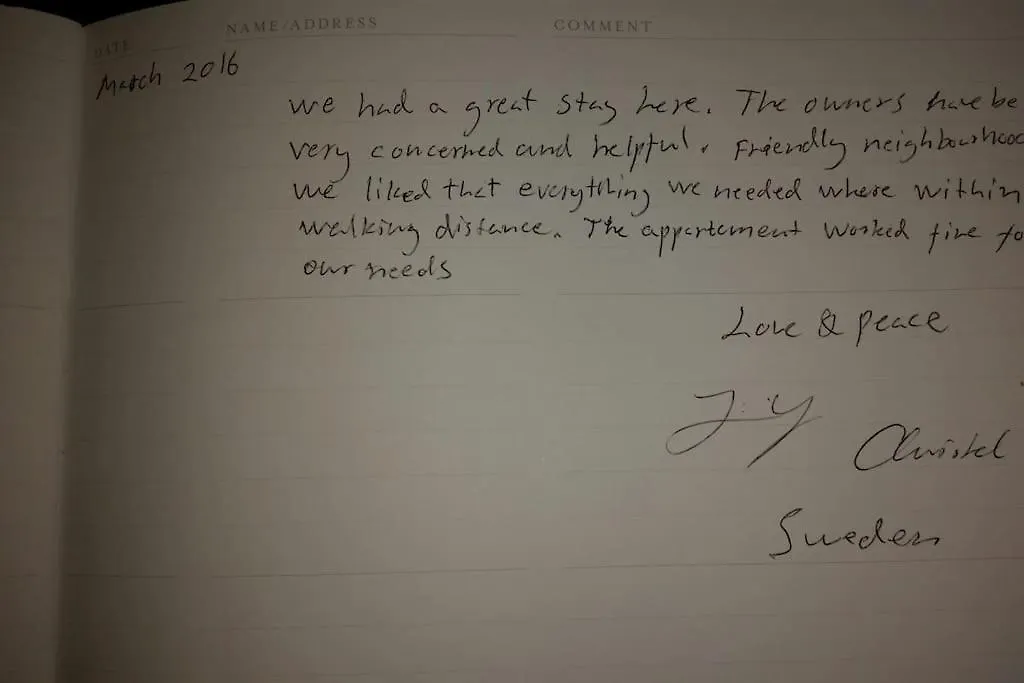 DATE NAME/ADDRESS COMMENT
March 2016
we had a great stay here. The owners have be
very concerned and helpful. Friendly neighbourhood
we liked that everything we needed where within
walking distance. The appartement worked fine fo
our needs
Love & peace
Christel
Sweden